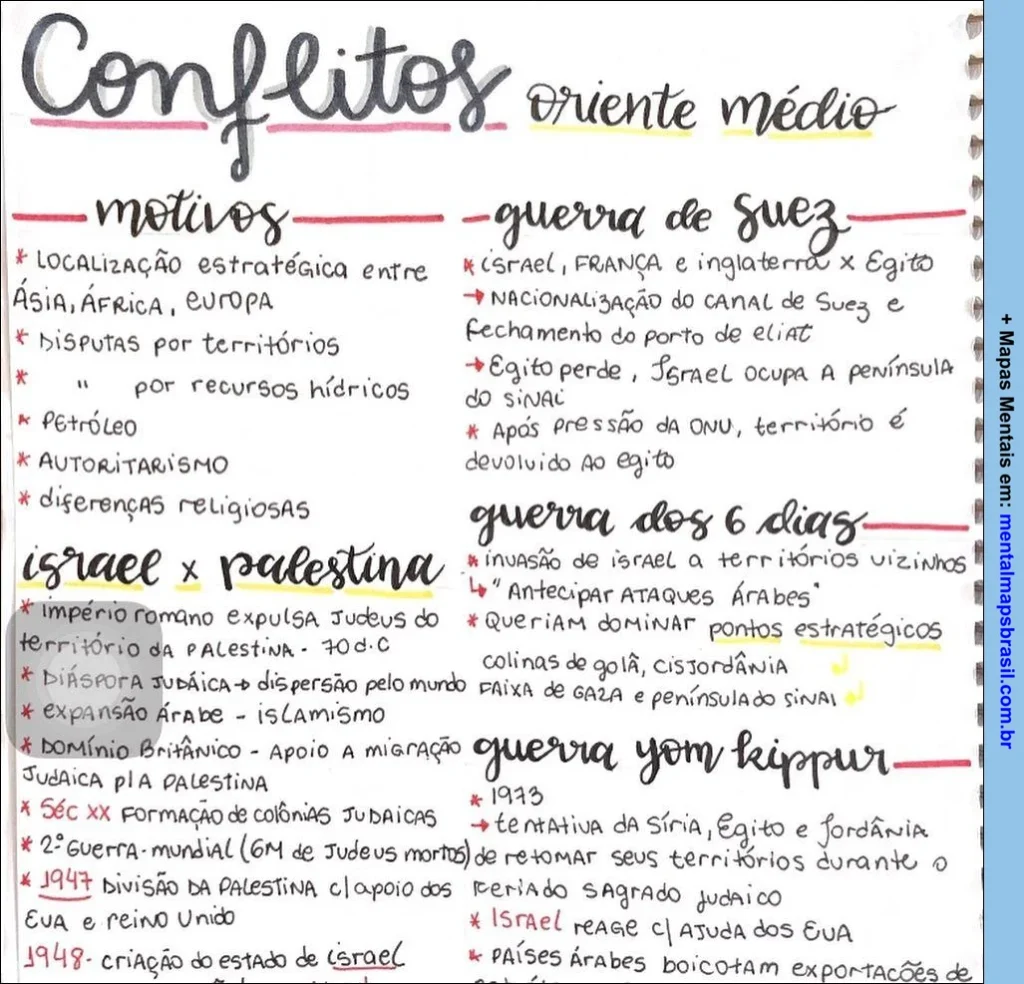 Conflitos oriente médio
motivos
* LOCALIZAÇÃO estratégica entre
ÁSIA, ÁFRICA, EUROPA
* DISPUTAS por territórios
* " por recursos hídricos
* PETRÓLEO
* AUTORITARISMO
* diferenças religiosas
israel x palestina
* império romano expulsa Judeus do
território da PALESTINA - 70 d.C
* DIÁSPORA JUDÁICA → dispersão pelo mundo
* expansão Árabe - islamismo
* DOMÍNIO Britânico - Apoio a migração
JUDAICA p/A PALESTINA
* Séc XX FORMAÇÃO de colônias JUDAICAS
* 2ª Guerra-mundial (6M de Judeus mortos)
* 1947 DIVISÃO DA PALESTINA c/apoio dos
EUA e reino Unido
1948 - criação do estado de israel
guerra de Suez
* israel, FRANÇA e inglaterra x Egito
→ NACIONALIZAÇÃO do CANAL de Suez e
fechamento do porto de eliat
→ Egito perde, Israel ocupa a península
do sinai
* Após pressão da ONU, território é
devolvido ao egito
guerra dos 6 dias
* invasão de israel a territórios vizinhos
↳ "Antecipar ATAQUES ÁRABES"
* QUERIAM DOMINAR pontos estratégicos
colinas de golã, cisjordânia
FAIXA de GAZA e península do sinai
guerra yom kippur
* 1973
→ tentativa da Síria, Egito e Jordânia
de retomar seus territórios durante o
feriado sagrado judaico
* Israel reage c/ ajuda dos EUA
* PAÍSES ÁRABES boicotam exportações de
+ Mapas Mentais em: mentalmapsbrasil.com.br